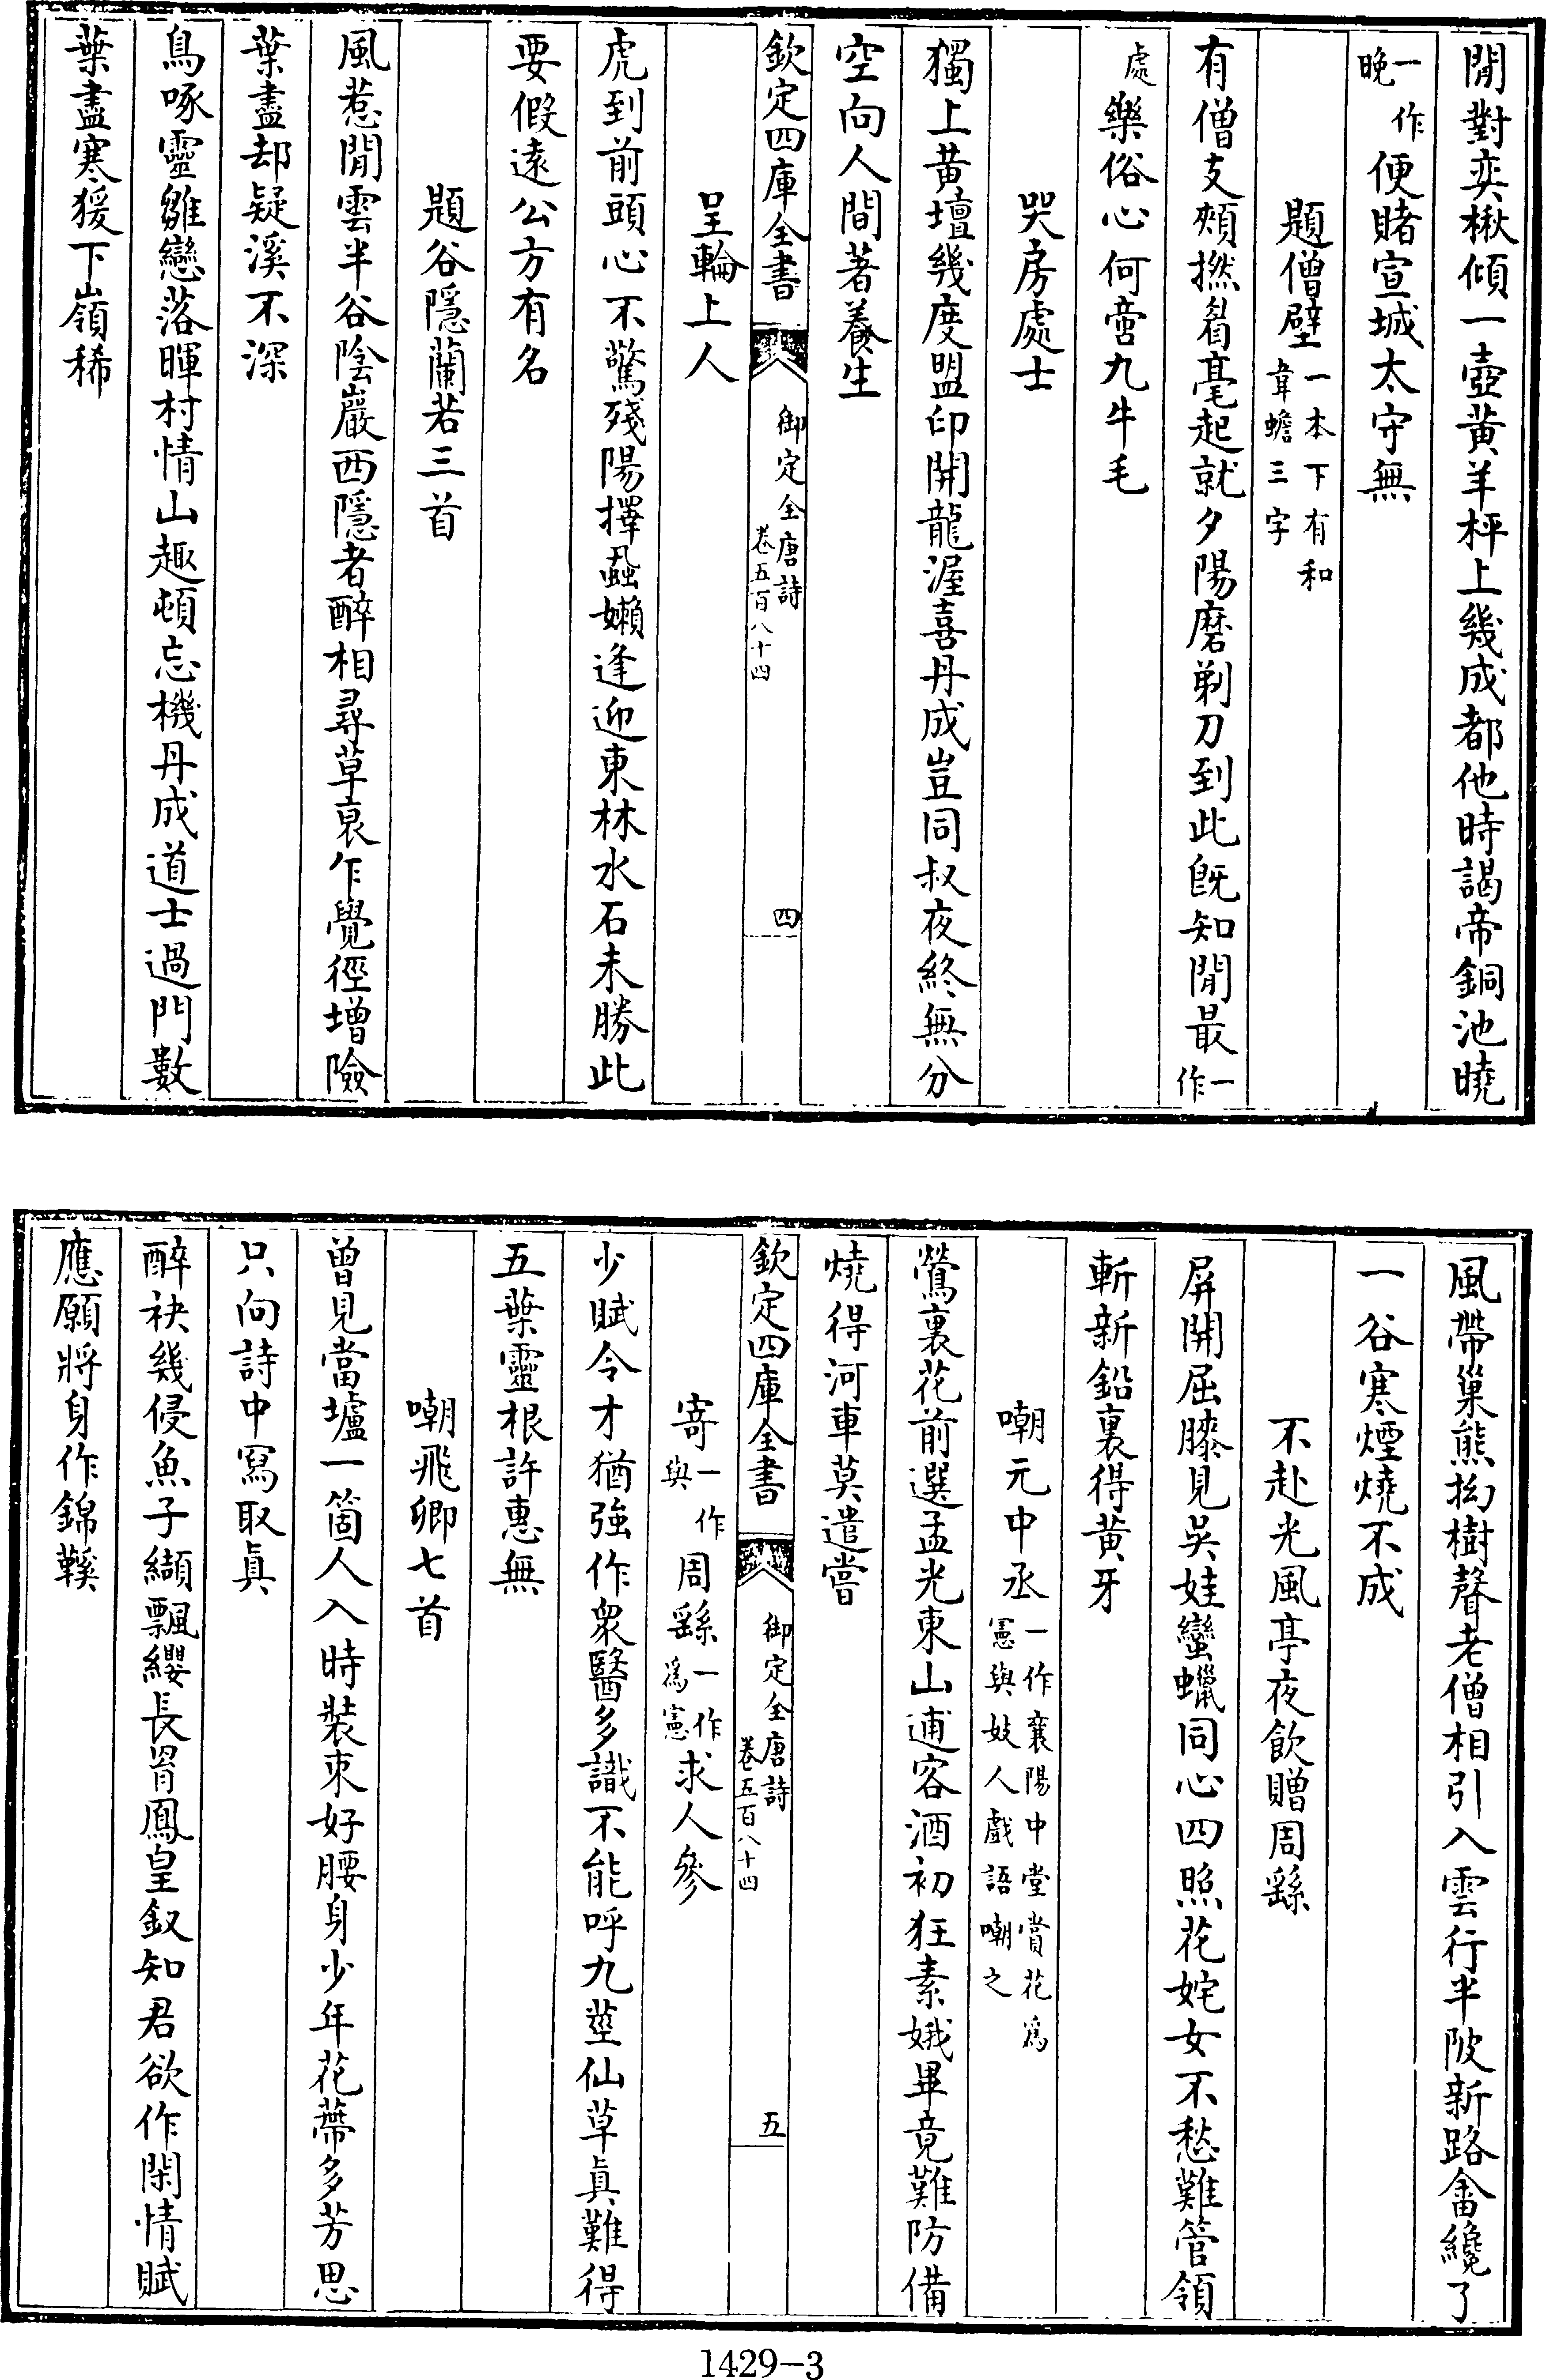 閒對奕楸傾一壺黄羊枰上幾成都他時謁帝銅池曉
一作晚便賭宣城太守無
題僧壁一本下有和韋蟾三字
有僧支頰撚眉毫起就夕陽磨剃刀到此旣知閒最一作
處樂俗心何啻九牛毛
哭房處士
獨上黄壇幾度盟印開龍渥喜丹成豈同叔夜終無分
空向人間著養生
欽定四庫全書
御定全唐詩
卷五百八十四
四
呈輪上人
虎到前頭心不驚殘陽擇蝨嬾逢迎東林水石未勝此
要假遠公方有名
題谷隱蘭若三首
風惹閒雲半谷陰巖西隱者醉相尋草衰乍覺徑增險
葉盡却疑溪不深
鳥啄靈雛戀落暉村情山趣頓忘機丹成道士過門數
葉盡寒猨下嶺稀
風帶巢熊拗樹聲老僧相引入雲行半陂新路畬纔了
一谷寒煙燒不成
不赴光風亭夜飲贈周繇
屏開屈膝見吳娃蠻蠟同心四照花姹女不愁難管領
斬新鉛裏得黄牙
嘲元中丞一作襄陽中堂賞花爲憲與妓人戲語嘲之
鶯裏花前選孟光東山逋客酒初狂素娥畢竟難防備
燒得河車莫遣嘗
欽定四庫全書
御定全唐詩
卷五百八十四
五
寄一作與周繇一作爲憲求人參
少賦令才猶強作衆醫多識不能呼九莖仙草眞難得
五葉靈根許惠無
嘲飛卿七首
曾見當壚一箇人入時裝束好腰身少年花蔕多芳思
只向詩中寫取眞
醉袂幾侵魚子纈飄纓長罥鳳皇釵知君欲作閑情賦
應願將身作錦鞵
1429-3